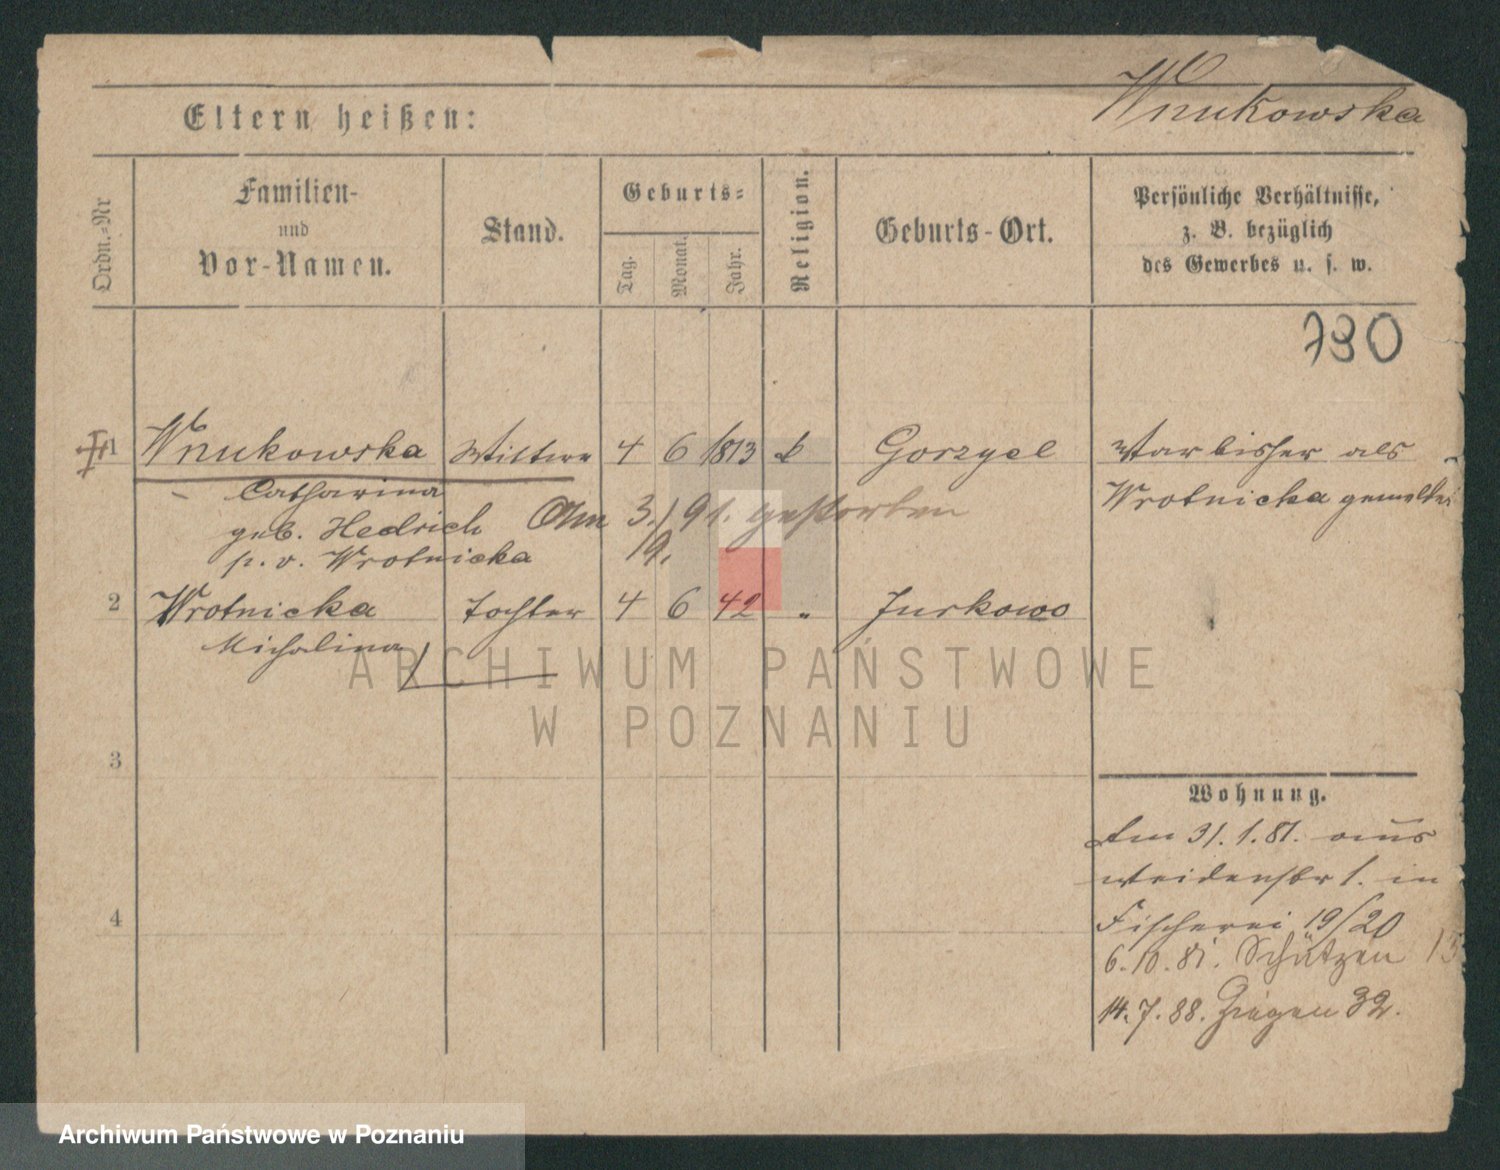 Wnukowska
Eltern heißen:
Ordn.-Nr
Familien-
und
Vor-Namen.
Stand.
Geburts-
Tag.
Monat.
Jahr.
Religion.
Geburts-Ort.
Persönliche Verhältnisse,
z. B. bezüglich
des Gewerbes u. s. w.
780
1 Wnukowska Wittwe 4 6 1813 k Gorzyel War bisher als
Catharina Wrotnicka gemeldet
geb. Hedrich Am 3./9. 91. gestorben
p. v. Wrotnicka
2 Wrotnicka Tochter 4 6 42 " Jurkowo
Michalina
ARCHIWUM PAŃSTWOWE
W POZNANIU
3
Wohnung.
Am 31.1.81. aus
Weidenstr 1. in
4
Fischerei 19/20
6.10.81. Schützen 13
14.7.88. Ziegen 32.
Archiwum Państwowe w Poznaniu